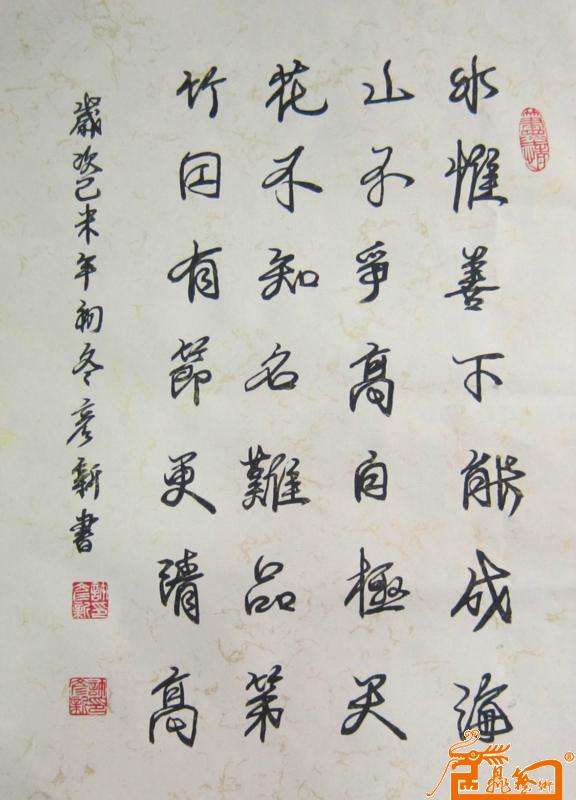 水惟善下能成海
山不爭高自極天
花不知名難品第
竹因有節更清高
歲次己未年初冬彥新書